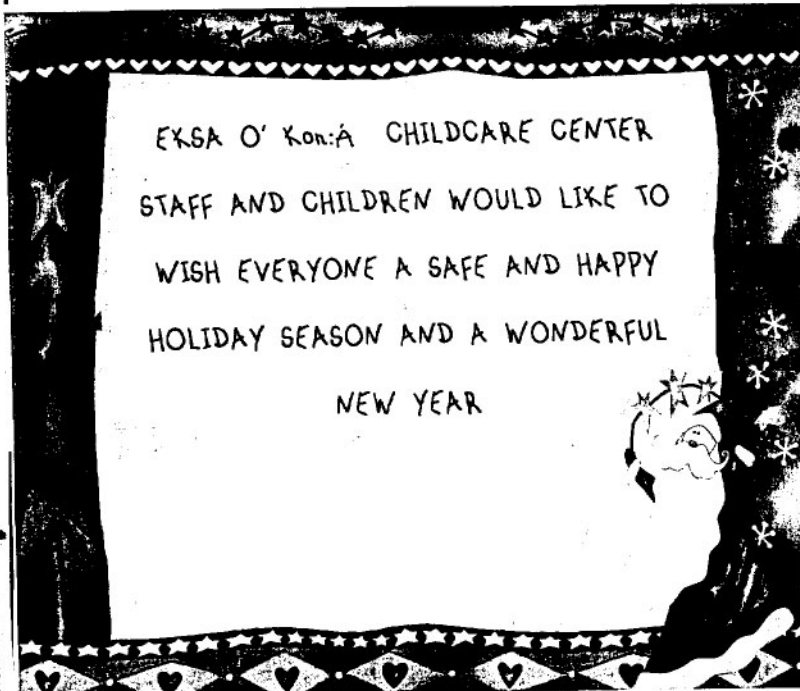 EKSA O' Kon:Á CHILDCARE CENTER
STAFF AND CHILDREN WOULD LIKE TO
WISH EVERYONE A SAFE AND HAPPY
HOLIDAY SEASON AND A WONDERFUL
NEW YEAR